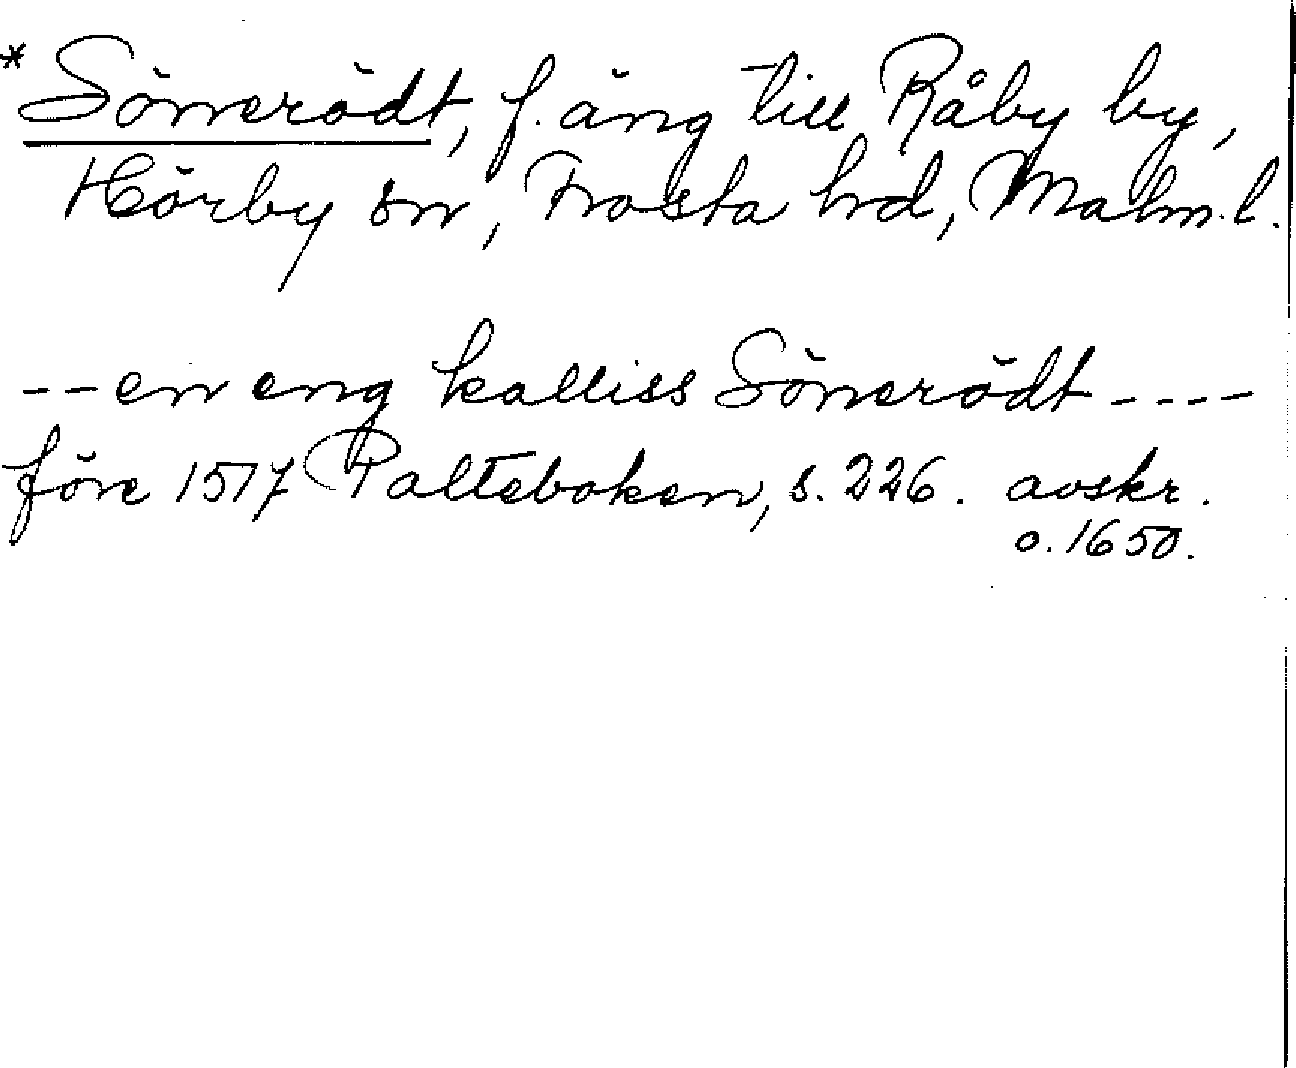 * Sönerödt, f. äng till Råby by,
Hörby sn, Frosta hd, Malm. l.
-- en eng kalliss Sönerödt ----
före 1517 Palteboken, s. 226. avskr.
o. 1650.